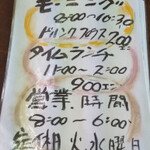 モーニング
8:00〜10:30
ドリンクプラス200円
タイムランチ
11:00〜2:00
900エン
営業時間
8:00〜6:00
定休日 火.水曜日